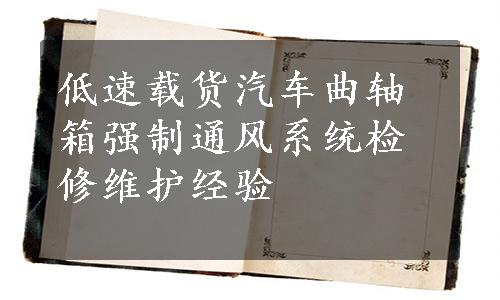 低速载货汽车曲轴
箱强制通风系统检
修维护经验